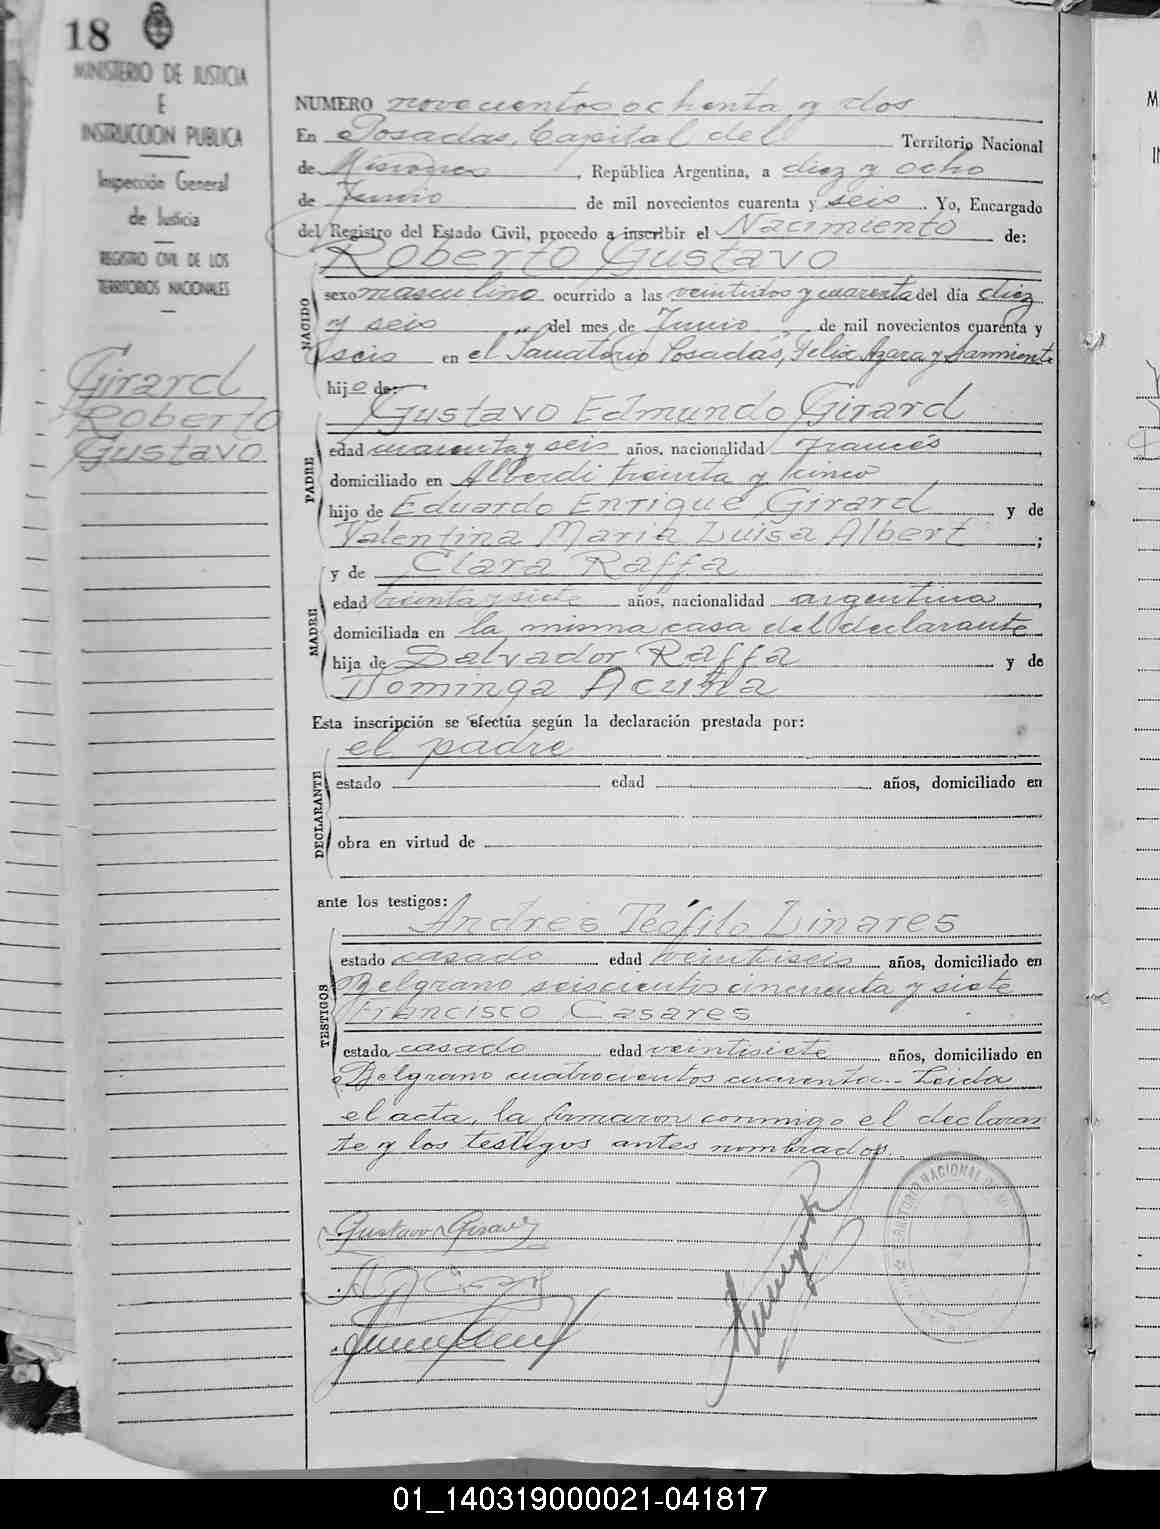 18
MINISTERIO DE JUSTICIA
E
INSTRUCCION PUBLICA
Inspección General
de Justicia
REGISTRO CIVIL DE LOS
TERRITORIOS NACIONALES
Girard
Roberto
Gustavo
NUMERO novecientos ochenta y dos
En Posadas, Capital del Territorio Nacional
de Misiones, República Argentina, a diez y ocho
de Junio de mil novecientos cuarenta y seis. Yo, Encargado
del Registro del Estado Civil, procedo a inscribir el Nacimiento de:
Roberto Gustavo
NACIDO
sexo masculino ocurrido a las veintidos y cuarenta del día diez
y seis del mes de Junio de mil novecientos cuarenta y
seis en el Sanatorio Posadas, Felix Azara y Sarmiento
hijo de:
Gustavo Edmundo Girard
PADRE
edad cuarenta y seis años, nacionalidad francés,
domiciliado en Alberdi treinta y cinco
hijo de Eduardo Enrique Girard y de
Valentina Maria Luisa Albert;
y de Clara Raffa
MADRE
edad treinta y siete años, nacionalidad argentina,
domiciliada en la misma casa del declarante
hija de Salvador Raffa y de
Dominga Acuña
Esta inscripción se efectúa según la declaración prestada por:
el padre
DECLARANTE
estado edad años, domiciliado en
obra en virtud de
ante los testigos:
Andrés Teófilo Linares
TESTIGOS
estado casado edad veintiseis años, domiciliado en
Belgrano seiscientos cincuenta y siete
Francisco Casares
estado casado edad veintisiete años, domiciliado en
Belgrano cuatrocientos cuarenta.- Leida
el acta, la firmaron conmigo el declaran
te y los testigos antes nombrados.
Gustavo Girard
01_140319000021-041817